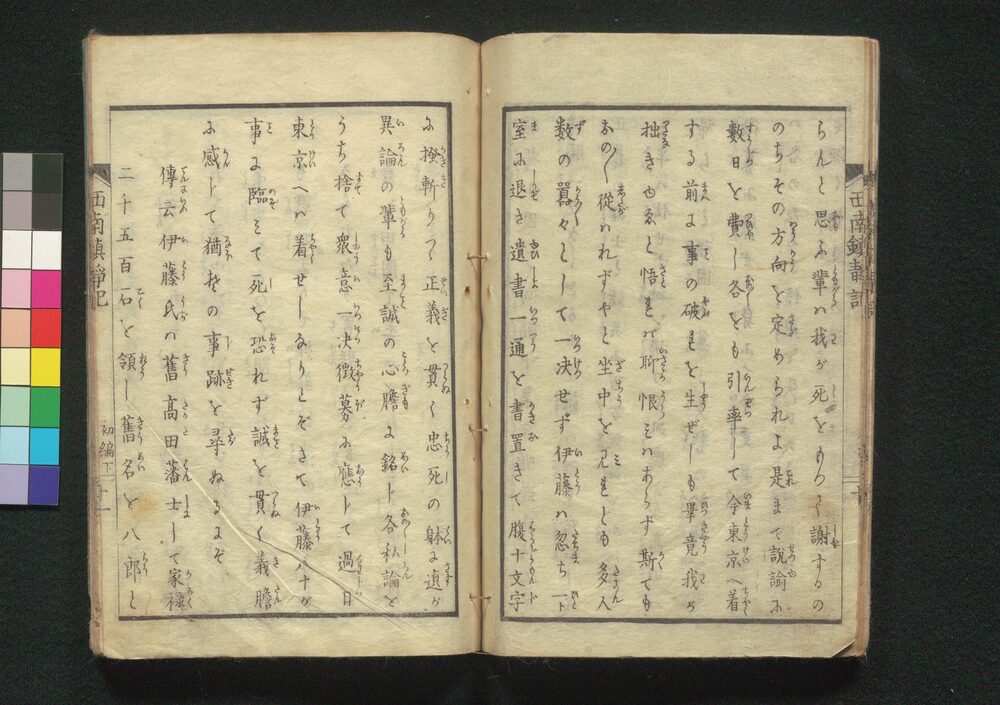 らんと思ふ輩ハ我が死をもつて謝するの
のちその方向を定められよ是まで説諭に
数日を費し各をも引率して今東京へ着
する前に事の破れを生ぜしも畢竟我が
拙きゆゑと悟れバ聊恨ミハあらず斯ても
おの〳〵従はれずやと坐中を見れども多人
数の囂々として一决せず伊藤ハ忽ち一ト
室に退き遺書一通を書置きて腹十文字
西南鎮静記
に掻斬りつゝ正義を貫く忠死の躰に遉が
異論の輩も至誠の心膽に銘じ各私論を
うち捨て衆意一决徴募に應じて過日
東京へハ着せしなりとぞさて伊藤八十が
事に臨ミて死を恐れず誠を貫く義膽
に感じて猶其の事跡を尋ぬるにぞ
傳云伊藤氏ハ舊高田藩士して家禄
二千五百石を領し舊名を八郎と
西南鎮静記
初編下
十一